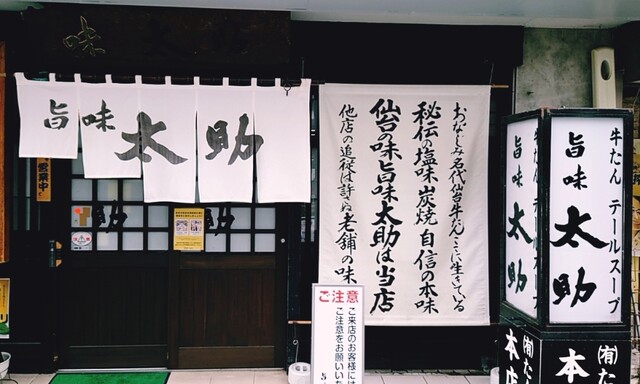 味
旨味 太助
営業中
おなじみ名代仙台牛たんここに生きている
秘伝の塩味 炭焼 自信の本味
仙台の味旨味太助は当店
他店の追従は許さぬ老舗の味
牛たん テールスープ
旨味 太助
(有)た
本店
牛たん テールスープ
旨味 太助
(有)た
本
ご注意
ご来店のお客様には
ご注意をお願いいた